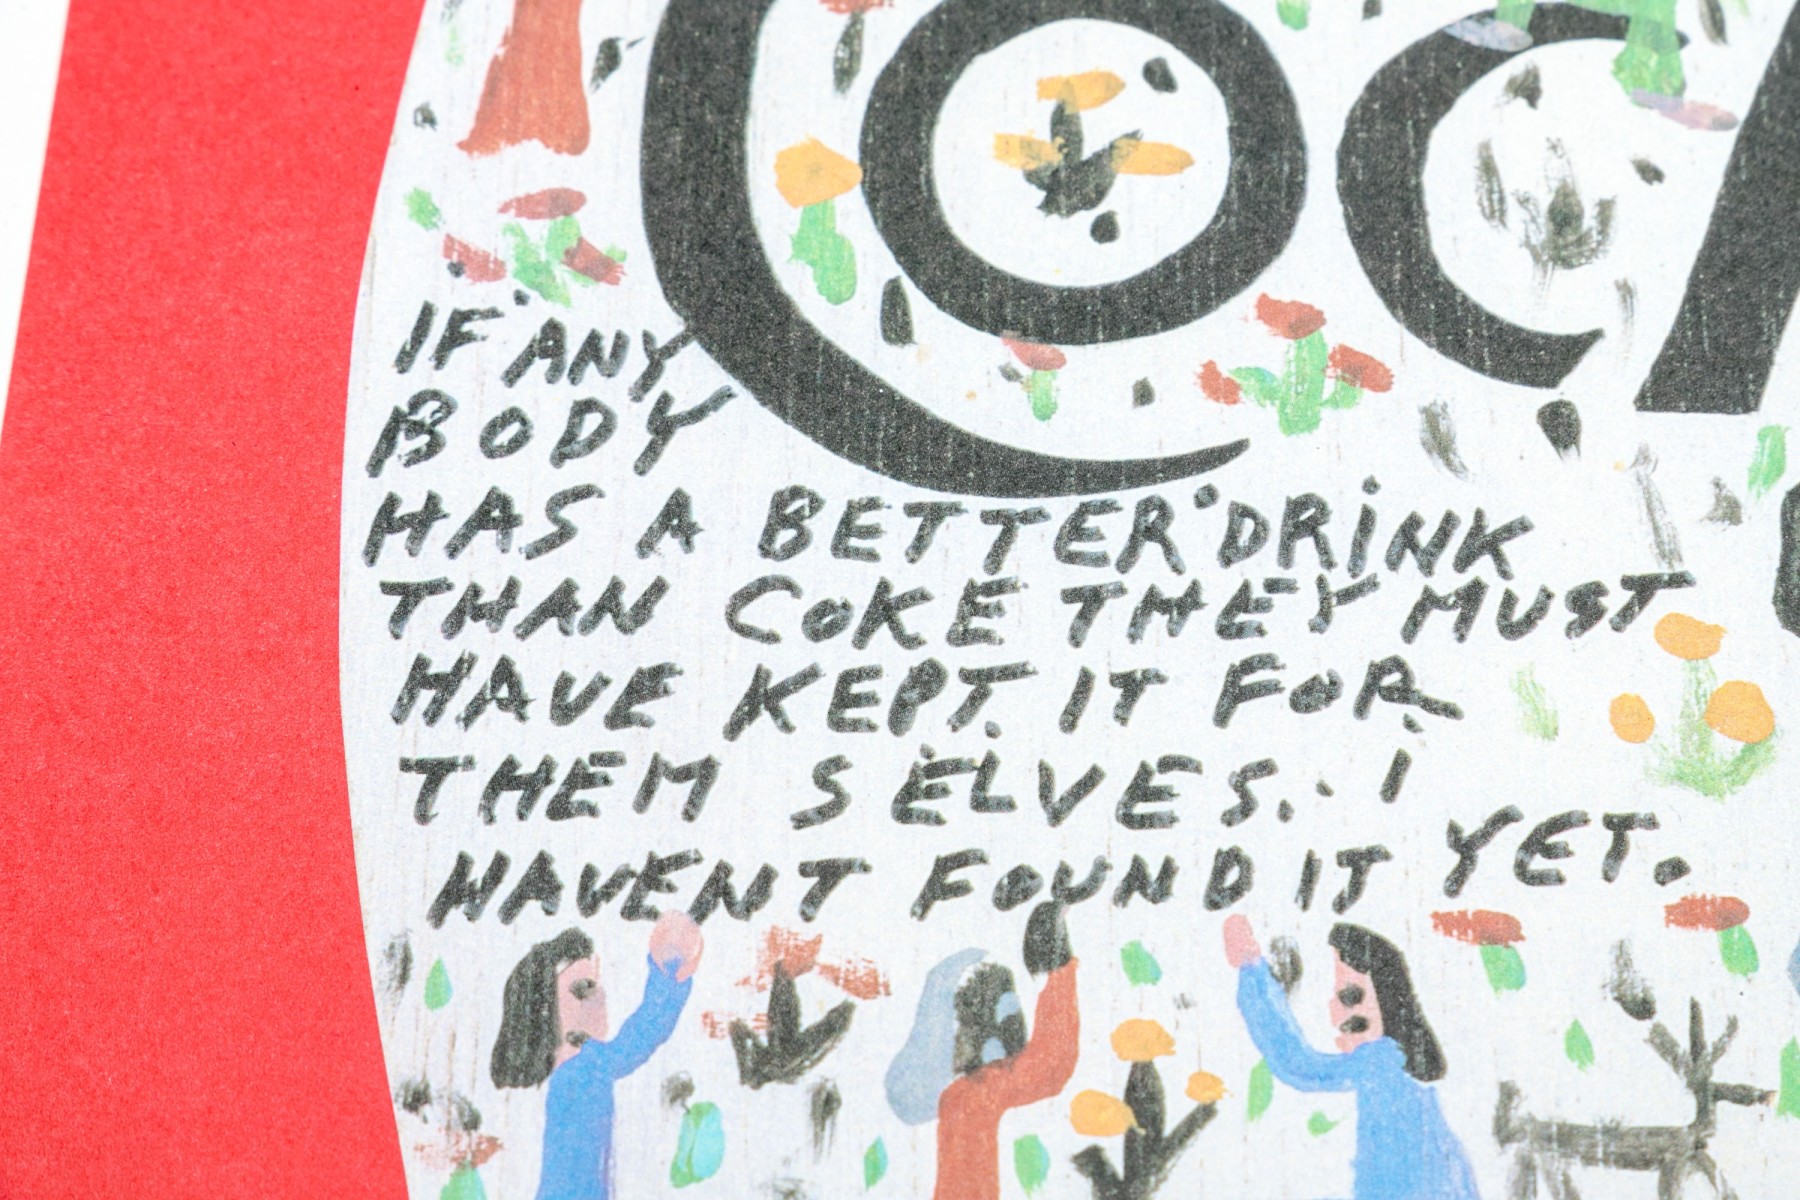 Coc
IF ANY
BODY
HAS A BETTER DRiNK
THAN COKE THEY MUST
HAVE KEPT IT FOR
THEM SELVES.. I
HAVENT FOUND IT YET.